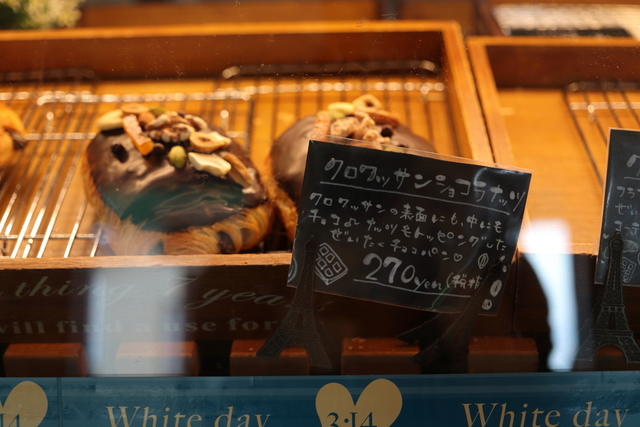 クロワッサンショコラナッツ
クロワッサンの表面にも、中にも
チョコ♪ ナッツもトッピングした
ぜいたくチョコパン♡
270yen(税抜)
thing 7 yea
will find a use for
White day
3.14
White day